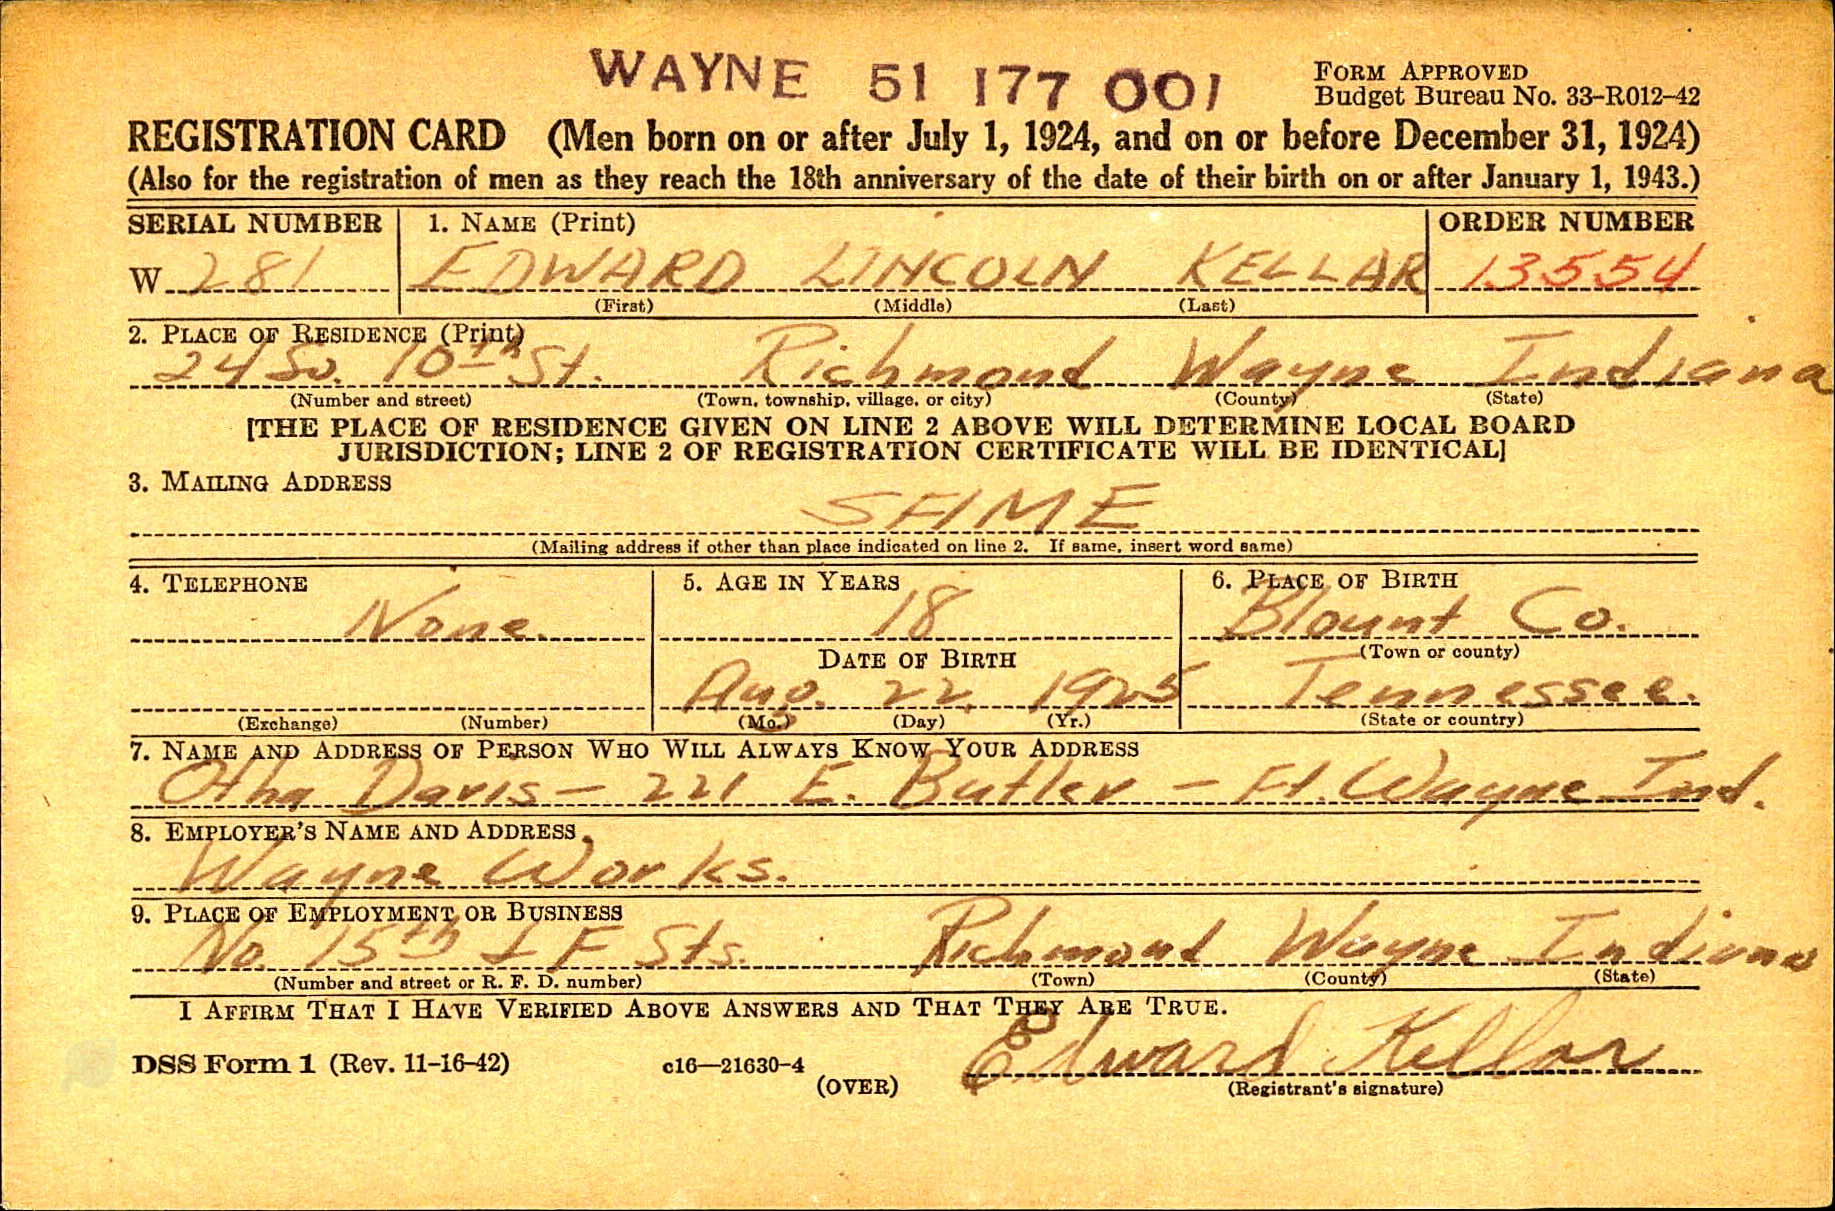 WAYNE 51 177 001
FORM APPROVED
Budget Bureau No. 33-R012-42
REGISTRATION CARD (Men born on or after July 1, 1924, and on or before December 31, 1924)
(Also for the registration of men as they reach the 18th anniversary of the date of their birth on or after January 1, 1943.)
SERIAL NUMBER 1. NAME (Print) ORDER NUMBER
W 281 EDWARD LINCOLN KELLAR 13554
(First) (Middle) (Last)
2. PLACE OF RESIDENCE (Print)
24 So. 10th St. Richmond Wayne Indiana
(Number and street) (Town, township, village, or city) (County) (State)
[THE PLACE OF RESIDENCE GIVEN ON LINE 2 ABOVE WILL DETERMINE LOCAL BOARD
JURISDICTION; LINE 2 OF REGISTRATION CERTIFICATE WILL BE IDENTICAL]
3. MAILING ADDRESS
SAME
(Mailing address if other than place indicated on line 2. If same, insert word same)
4. TELEPHONE 5. AGE IN YEARS 6. PLACE OF BIRTH
None. 18 Blount Co.
DATE OF BIRTH (Town or county)
Aug. 22, 1925 Tennessee.
(Exchange) (Number) (Mo.) (Day) (Yr.) (State or country)
7. NAME AND ADDRESS OF PERSON WHO WILL ALWAYS KNOW YOUR ADDRESS
Otha Davis - 221 E. Butler - Ft. Wayne Ind.
8. EMPLOYER'S NAME AND ADDRESS
Wayne Works.
9. PLACE OF EMPLOYMENT OR BUSINESS
No. 15th & F Sts. Richmond Wayne Indiana
(Number and street or R. F. D. number) (Town) (County) (State)
I AFFIRM THAT I HAVE VERIFIED ABOVE ANSWERS AND THAT THEY ARE TRUE.
DSS Form 1 (Rev. 11-16-42) c16—21630-4 Edward Kellar
(OVER) (Registrant's signature)